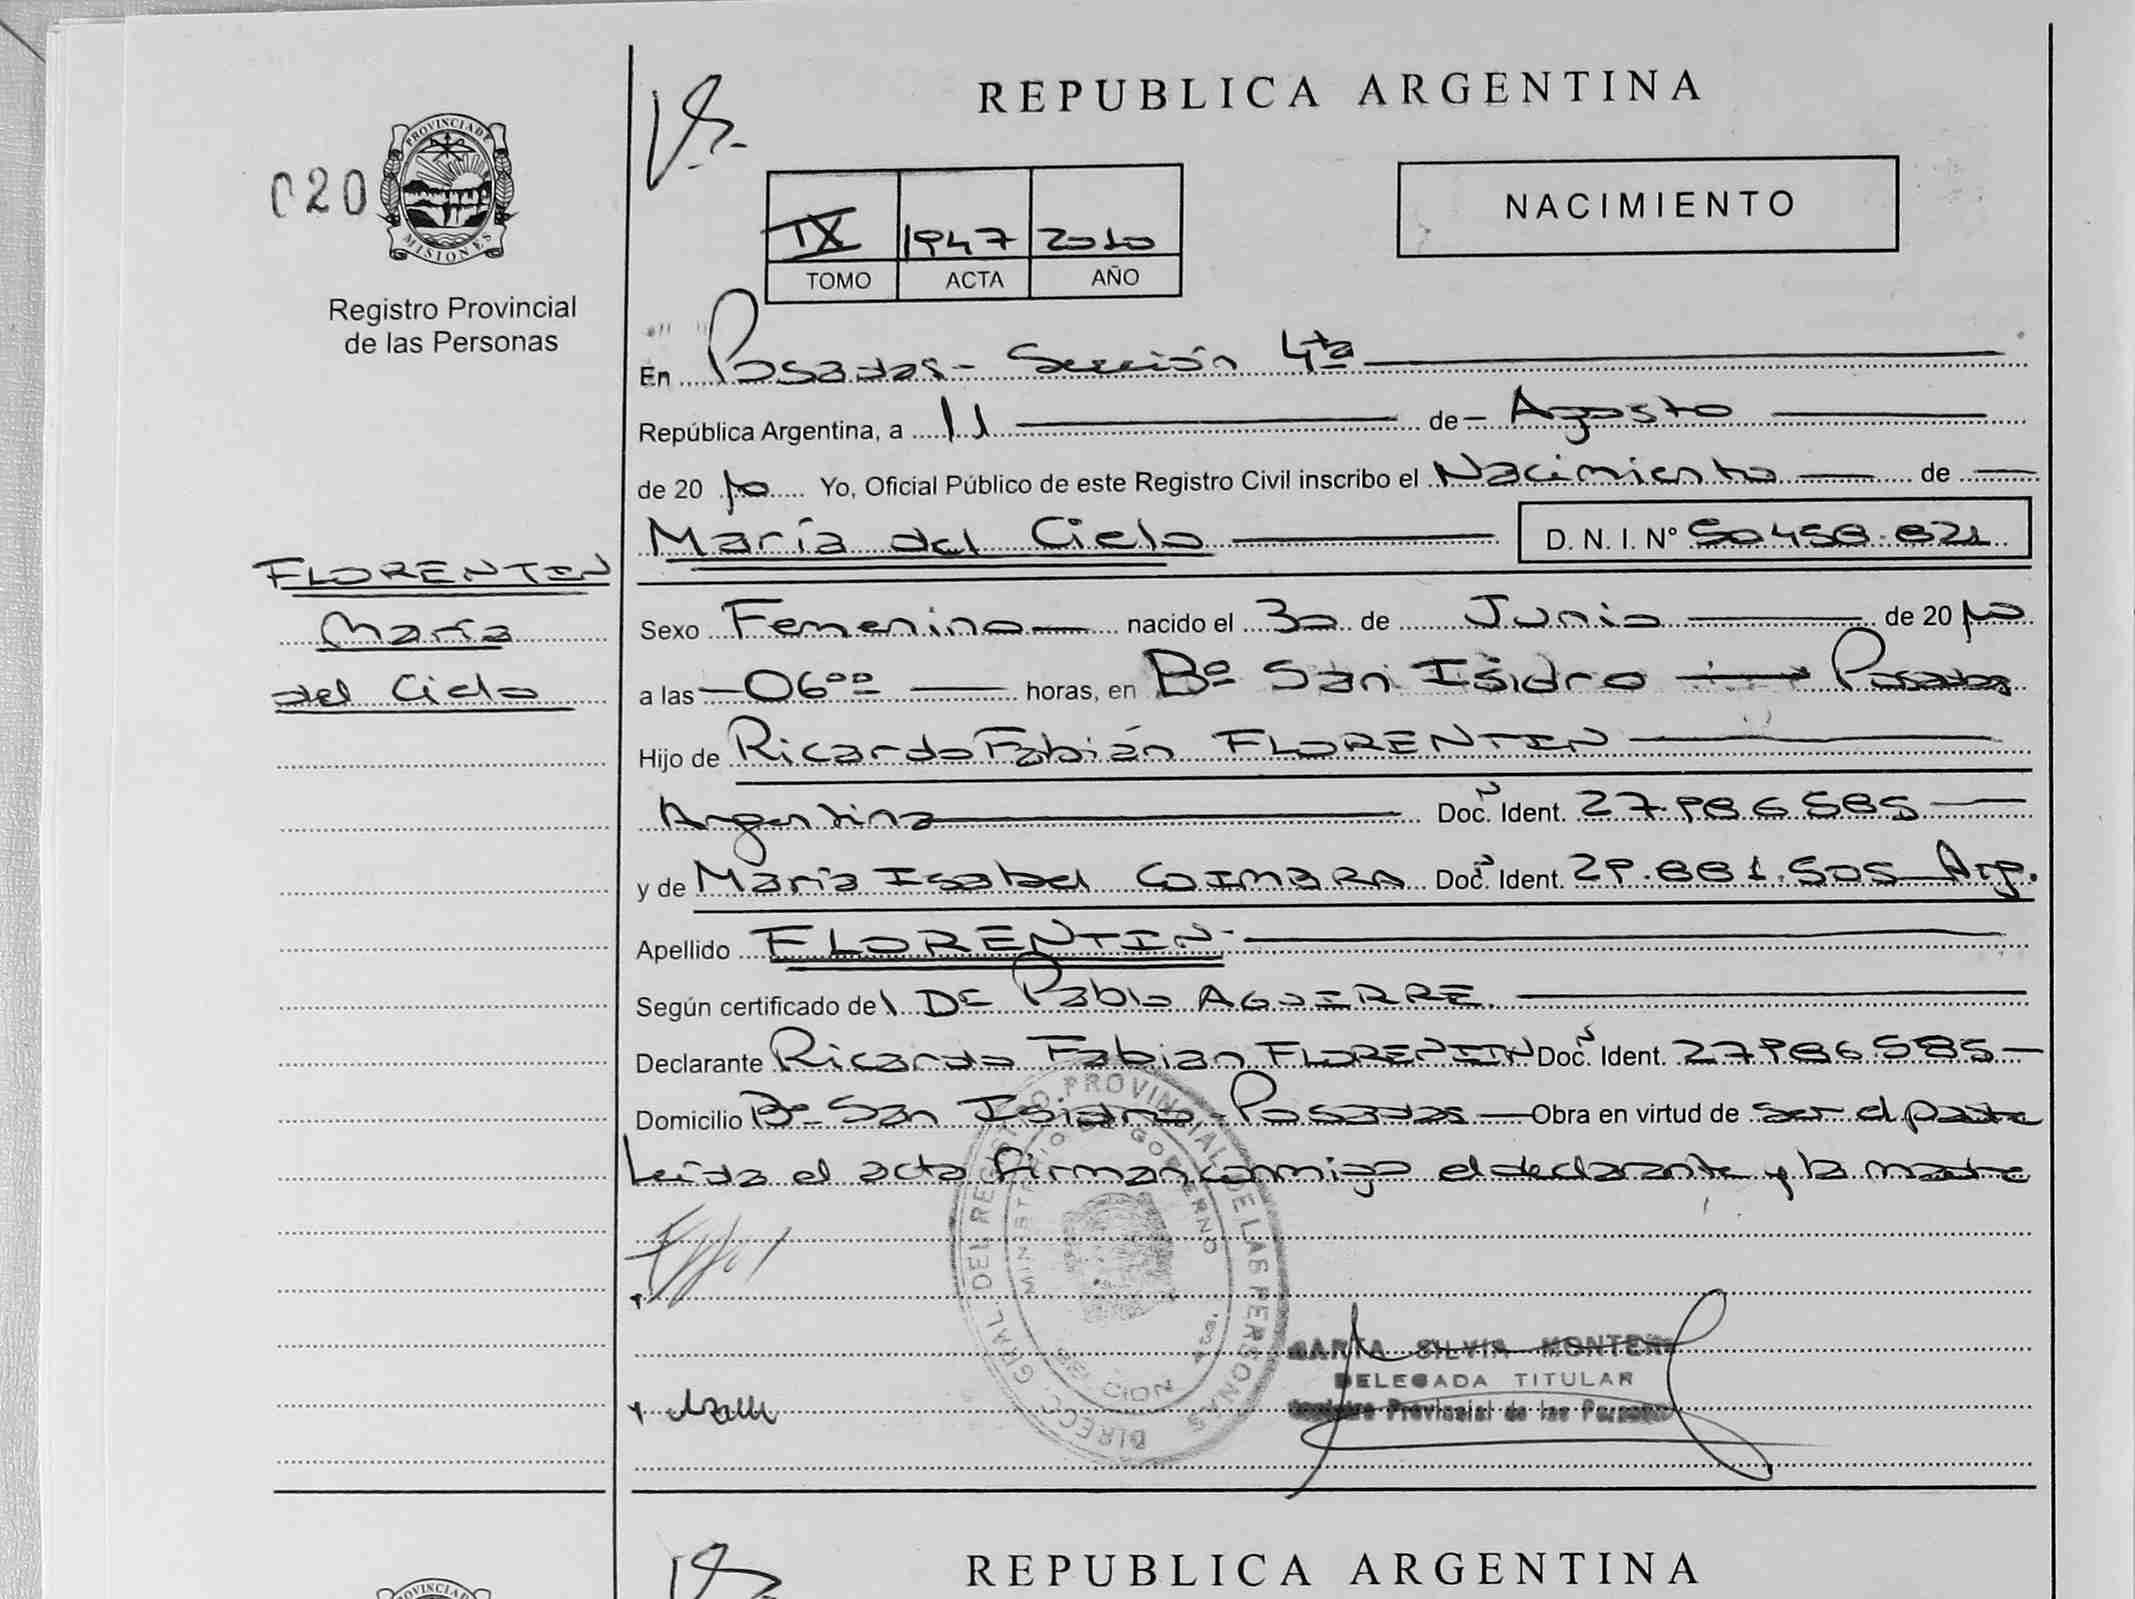 REPUBLICA ARGENTINA
020
PROVINCIA DE
MISIONES
Registro Provincial
de las Personas
NACIMIENTO
IX 1947 2010
TOMO ACTA AÑO
En Posadas - Sección 4ta
República Argentina, a 11 de Agosto
de 2010 Yo, Oficial Público de este Registro Civil inscribo el Nacimiento de
María del Cielo D. N. I. Nº 50.458.821
FLORENTIN
María
del Cielo
Sexo Femenino nacido el 30 de Junio de 2010
a las 06°° horas, en Bº San Isidro Posadas
Hijo de Ricardo Fabián FLORENTIN
Argentina Doc. Ident. 27.986.585
y de María Isabel COIMBRA Doc. Ident. 29.881.505 Arg.
Apellido FLORENTIN
Según certificado del Dr Pablo AGUIRRE.
Declarante Ricardo Fabian FLORENTIN Doc. Ident. 27.986.585
Domicilio Bº San Isidro - Posadas Obra en virtud de ser el padre
Leída el acta firman conmigo el declarante y la madre
DIRECC. GRAL. DEL REGISTRO PROVINCIAL DE LAS PERSONAS
MINISTERIO DE GOBIERNO
SECCION 4ta.
SILVIA
DELEGADA TITULAR
Registro Provincial de las Personas
REPUBLICA ARGENTINA